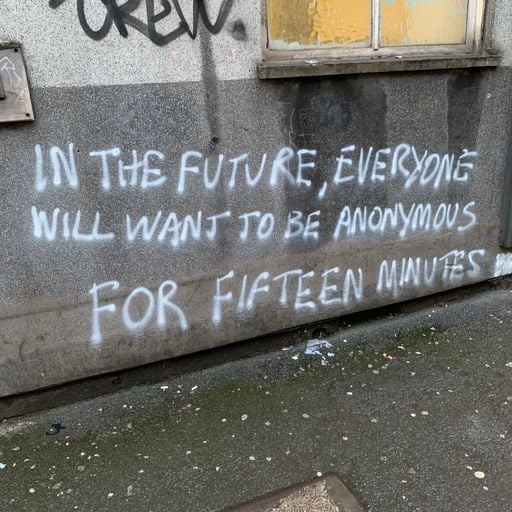 CREW.
IN THE FUTURE, EVERYONE
WILL WANT TO BE ANONYMOUS
FOR FIFTEEN MINUTES